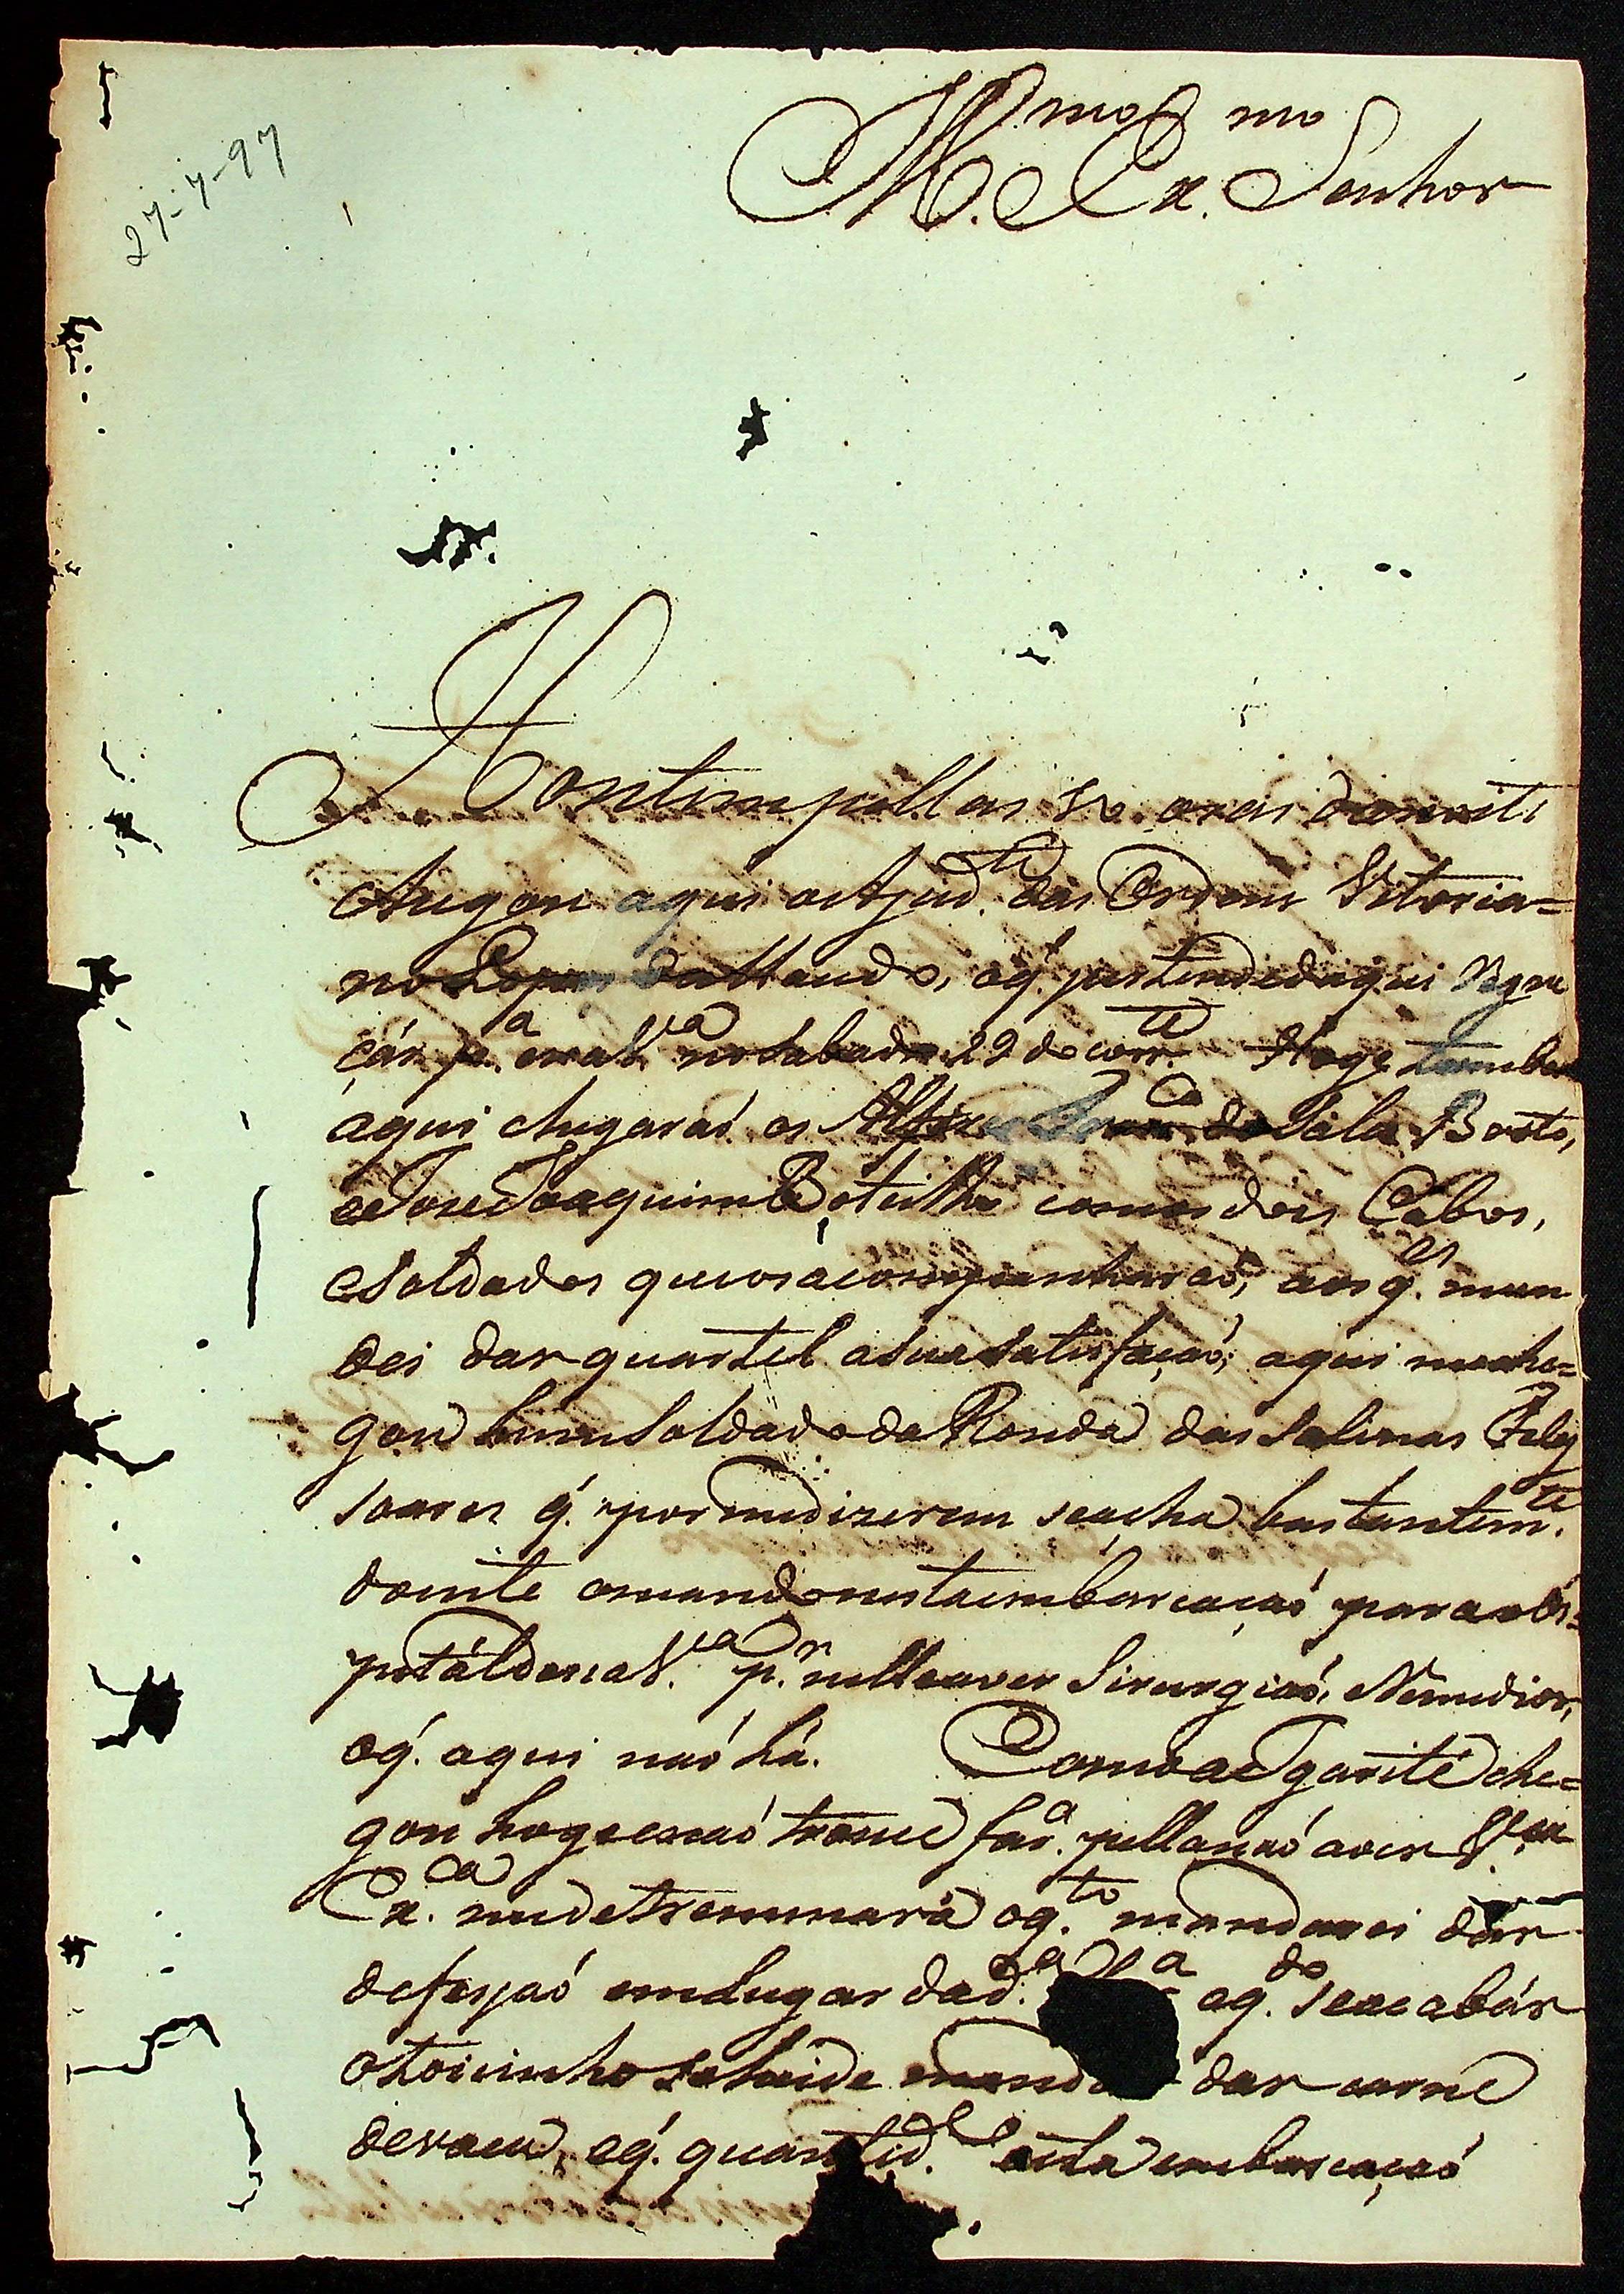 27-7-97
Ill.mo Ex.mo Senhor
Hontem pellas oras danoite
chegou aqui o Ajud.te das Ordens Vitoria=
no Lopes de Maudo, oq' pertende daqui Regre
çár p.a eça V.a no Sabado 29 do corr.te Hoge tambem
aqui chegaraó os Alferes da Sala Basto,
e Joze Joaquim Botelho com os dois Cabos,
e Soldados que os acompanharaó, aos q.es man
dei dar quartel a Sua satisfaçaó; aqui me che=
gou hum Soldado da Ronda das Salinas
Soares q' por me dizerem se acha bastantem.te
doente o mando nesta embarcaçaó para o Os=
pitál deça V.a p.r nelle aver Sirurgiaó, e Remedios,
oq' aqui naó há. Como a Igarité che=
gou hoge e naó trouce far.a pella naó aver V.a
Ex.ca me detremmará o q.to mandarei dar
de feyjaó em lugar da d.a far.a e q.do se acabár
o toicinho se heide mandar dar carne
de vaca, e q' quantid.e esta embarcaçaó